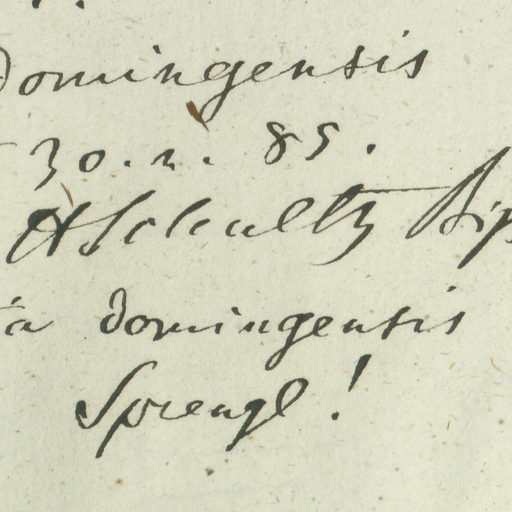 Domingensis
30. n. 85.
H Schultz Bip
ta domingensis
Sprengl!